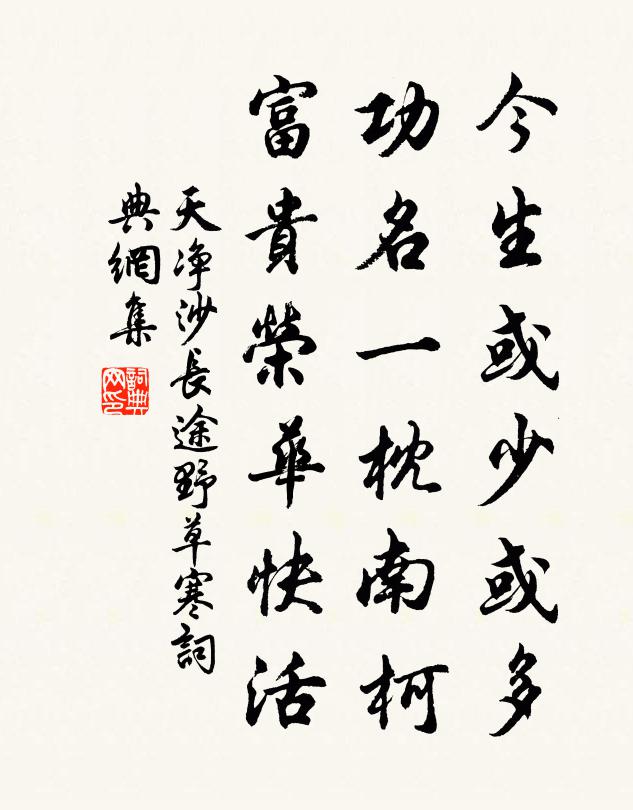 今生或少或多
功名一枕南柯
富貴榮華快活
天净沙長途野草寒詞
典網集
詞典
网印